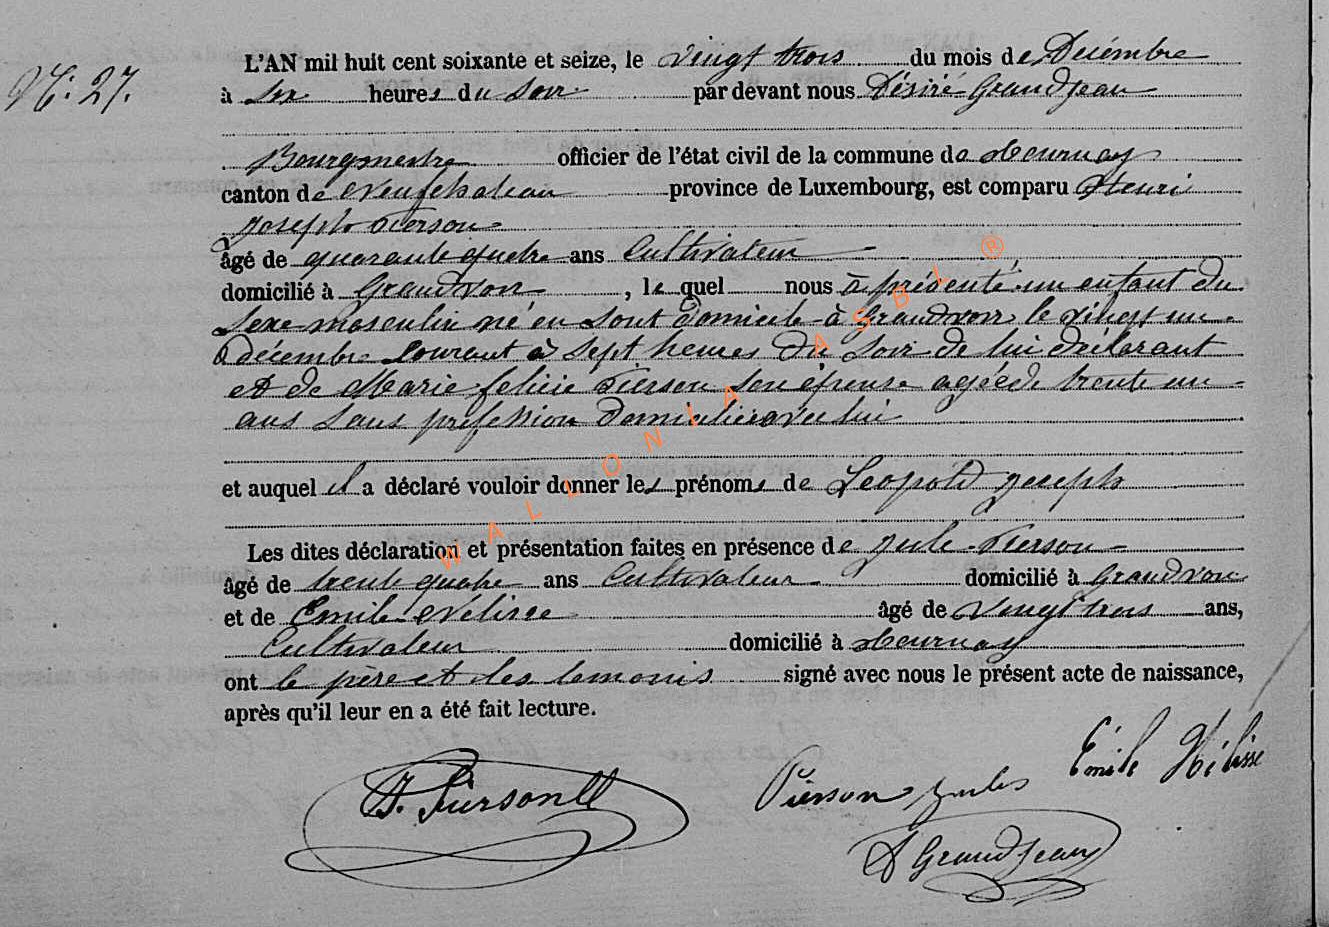 N°: 27.
L'AN mil huit cent soixante et seize, le vingt trois du mois de Décembre
à six heures du soir par devant nous Désiré Grandjean
Bourgmestre officier de l'état civil de la commune de Tournay
canton de Neufchateau province de Luxembourg, est comparu Henri
Joseph Pierson
âgé de quarante quatre ans Cultivateur
domicilié à Grandvoir, le quel nous à présenté un enfant du
sexe masculin né en sont domicile à Grandvoir le vingt un
décembre courant à sept heures du soir de lui déclarant
et de Marie félicie Pierson son épouse agéede trente un
ans sans profession domicilier avec lui
et auquel il a déclaré vouloir donner les prénoms de Léopold joseph
Les dites déclaration et présentation faites en présence de jule Pierson
âgé de trente quatre ans Cultivateur domicilié à Grandvoir
et de Emile Nélisse âgé de vingt trois ans,
Cultivateur domicilié à Tournay
ont le père et les temoins signé avec nous le présent acte de naissance,
après qu'il leur en a été fait lecture.
Pierson
Pierson jules
Émile Nélisse
D Grandjean
WALLONIA ASBL ®